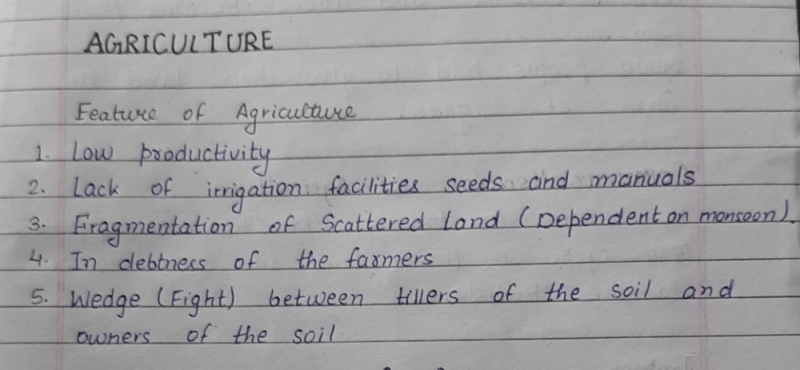 AGRICULTURE
Feature of Agriculture
1. Low productivity
2. Lack of irrigation facilities seeds and manuals
3. Fragmentation of Scattered land (Dependent on monsoon).
4. In debtness of the farmers
5. Wedge (Fight) between tillers of the soil and
owners of the soil